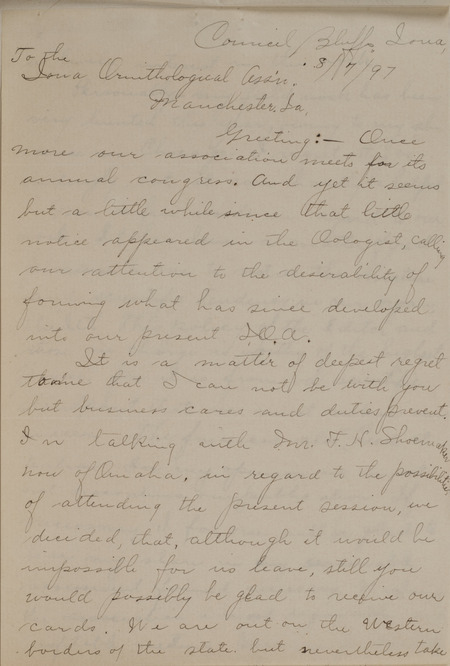 Council Bluffs Iowa,
8/17/97
To the
Iowa Ornithological Ass'n.
Manchester Ia.
Greeting:- Once
more our association meets for its
annual congress. And yet it seems
but a little while since that little
notice appeared in the Oologist, calling
our attention to the desirability of
forming what has since developed
into our present I.O.A.
It is a matter of deepest regret
to me that I can not be with you
but business cares and duties prevent.
In talking with Mr. F. H. Shoemaker
now of Omaha, in regard to the possibilities
of attending the present session, we
decided, that, although it would be
impossible for us leave, still you
would possibly be glad to receive our
cards. We are out on the Western
borders of the state but nevertheless take